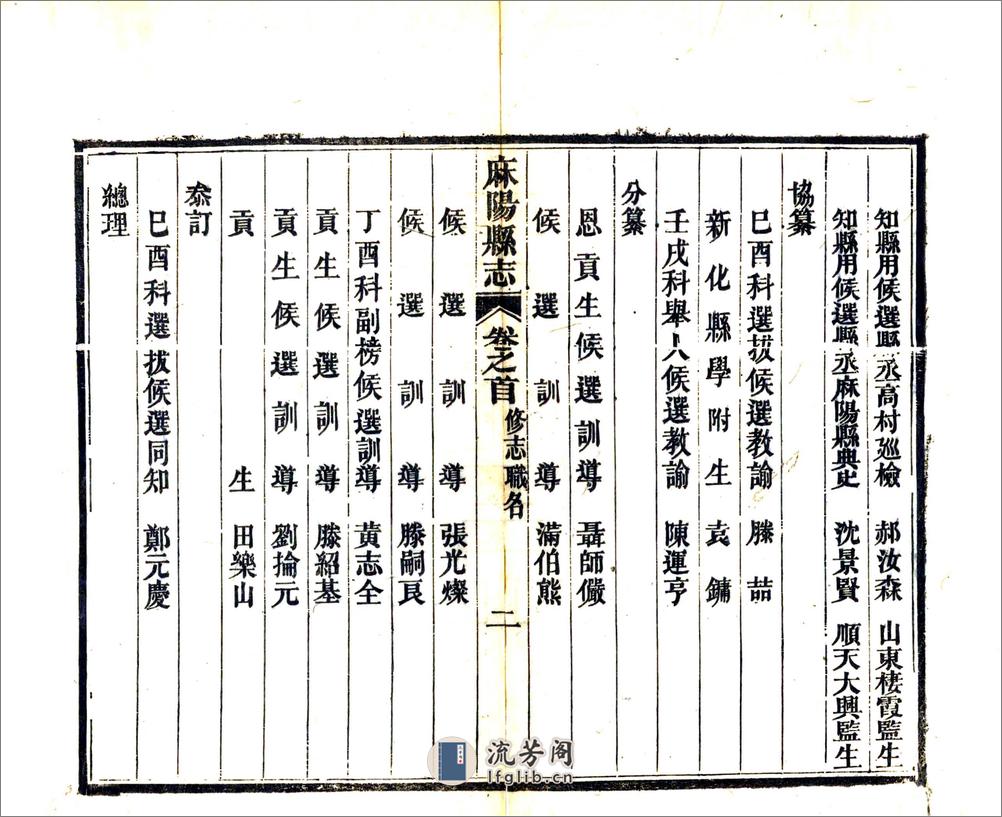 知縣用候選縣丞高村廵檢 郝汝森 山東棲霞監生
知縣用候選縣丞麻陽縣典史 沈景賢 順天大興監生
協纂
巳酉科選拔候選教諭 滕喆
新化縣學附生 袁鏞
壬戌科舉人候選教諭 陳運亨
分纂
恩貢生候選訓導 聶師儼
候選訓導 滿伯熊
麻陽縣志 卷之首 修志職名 二
候選訓導 張光燦
候選訓導 滕嗣良
丁酉科副榜候選訓導 黃志全
貢生候選訓導 滕紹基
貢生候選訓導 劉掄元
貢生 田樂山
叅訂
巳酉科選拔候選同知 鄭元慶
總理
流芳阁
lfglib.cn